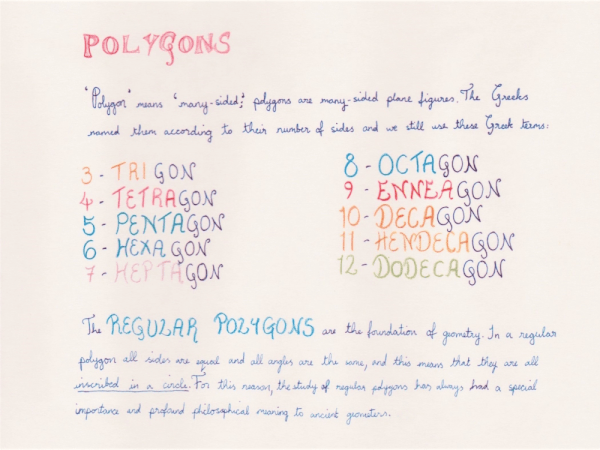 POLYGONS
'Polygon' means 'many-sided'; polygons are many-sided plane figures. The Greeks
named them according to their number of sides and we still use these Greek terms:
3 - TRIGON
4 - TETRAGON
5 - PENTAGON
6 - HEXAGON
7 - HEPTAGON
8 - OCTAGON
9 - ENNEAGON
10 - DECAGON
11 - HENDECAGON
12 - DODECAGON
The REGULAR POLYGONS are the foundation of geometry. In a regular
polygon all sides are equal and all angles are the same, and this means that they are all
inscribed in a circle. For this reason, the study of regular polygons has always had a special
importance and profound philosophical meaning to ancient geometers.